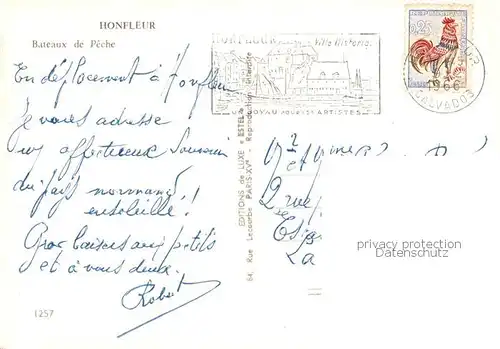 HONFLEUR
Bateaux de Pêche
En déplacement à Honfleur
Je vous adresse
un affectueux Souvenir
du pays normand
ensoleillé !
Gros baisers aux petits
et à vous deux.
Robert
1257
EDITIONS de LUXE « ESTEL »
64, Rue Lecourbe PARIS-XVe - Reproduction interdite
HONFLEUR
Ville Historiq.
JOYAU POUR LES ARTISTES
0,25
1966
CALVADOS
Mr et Mme
2 rue
La
privacy protection
Datenschutz